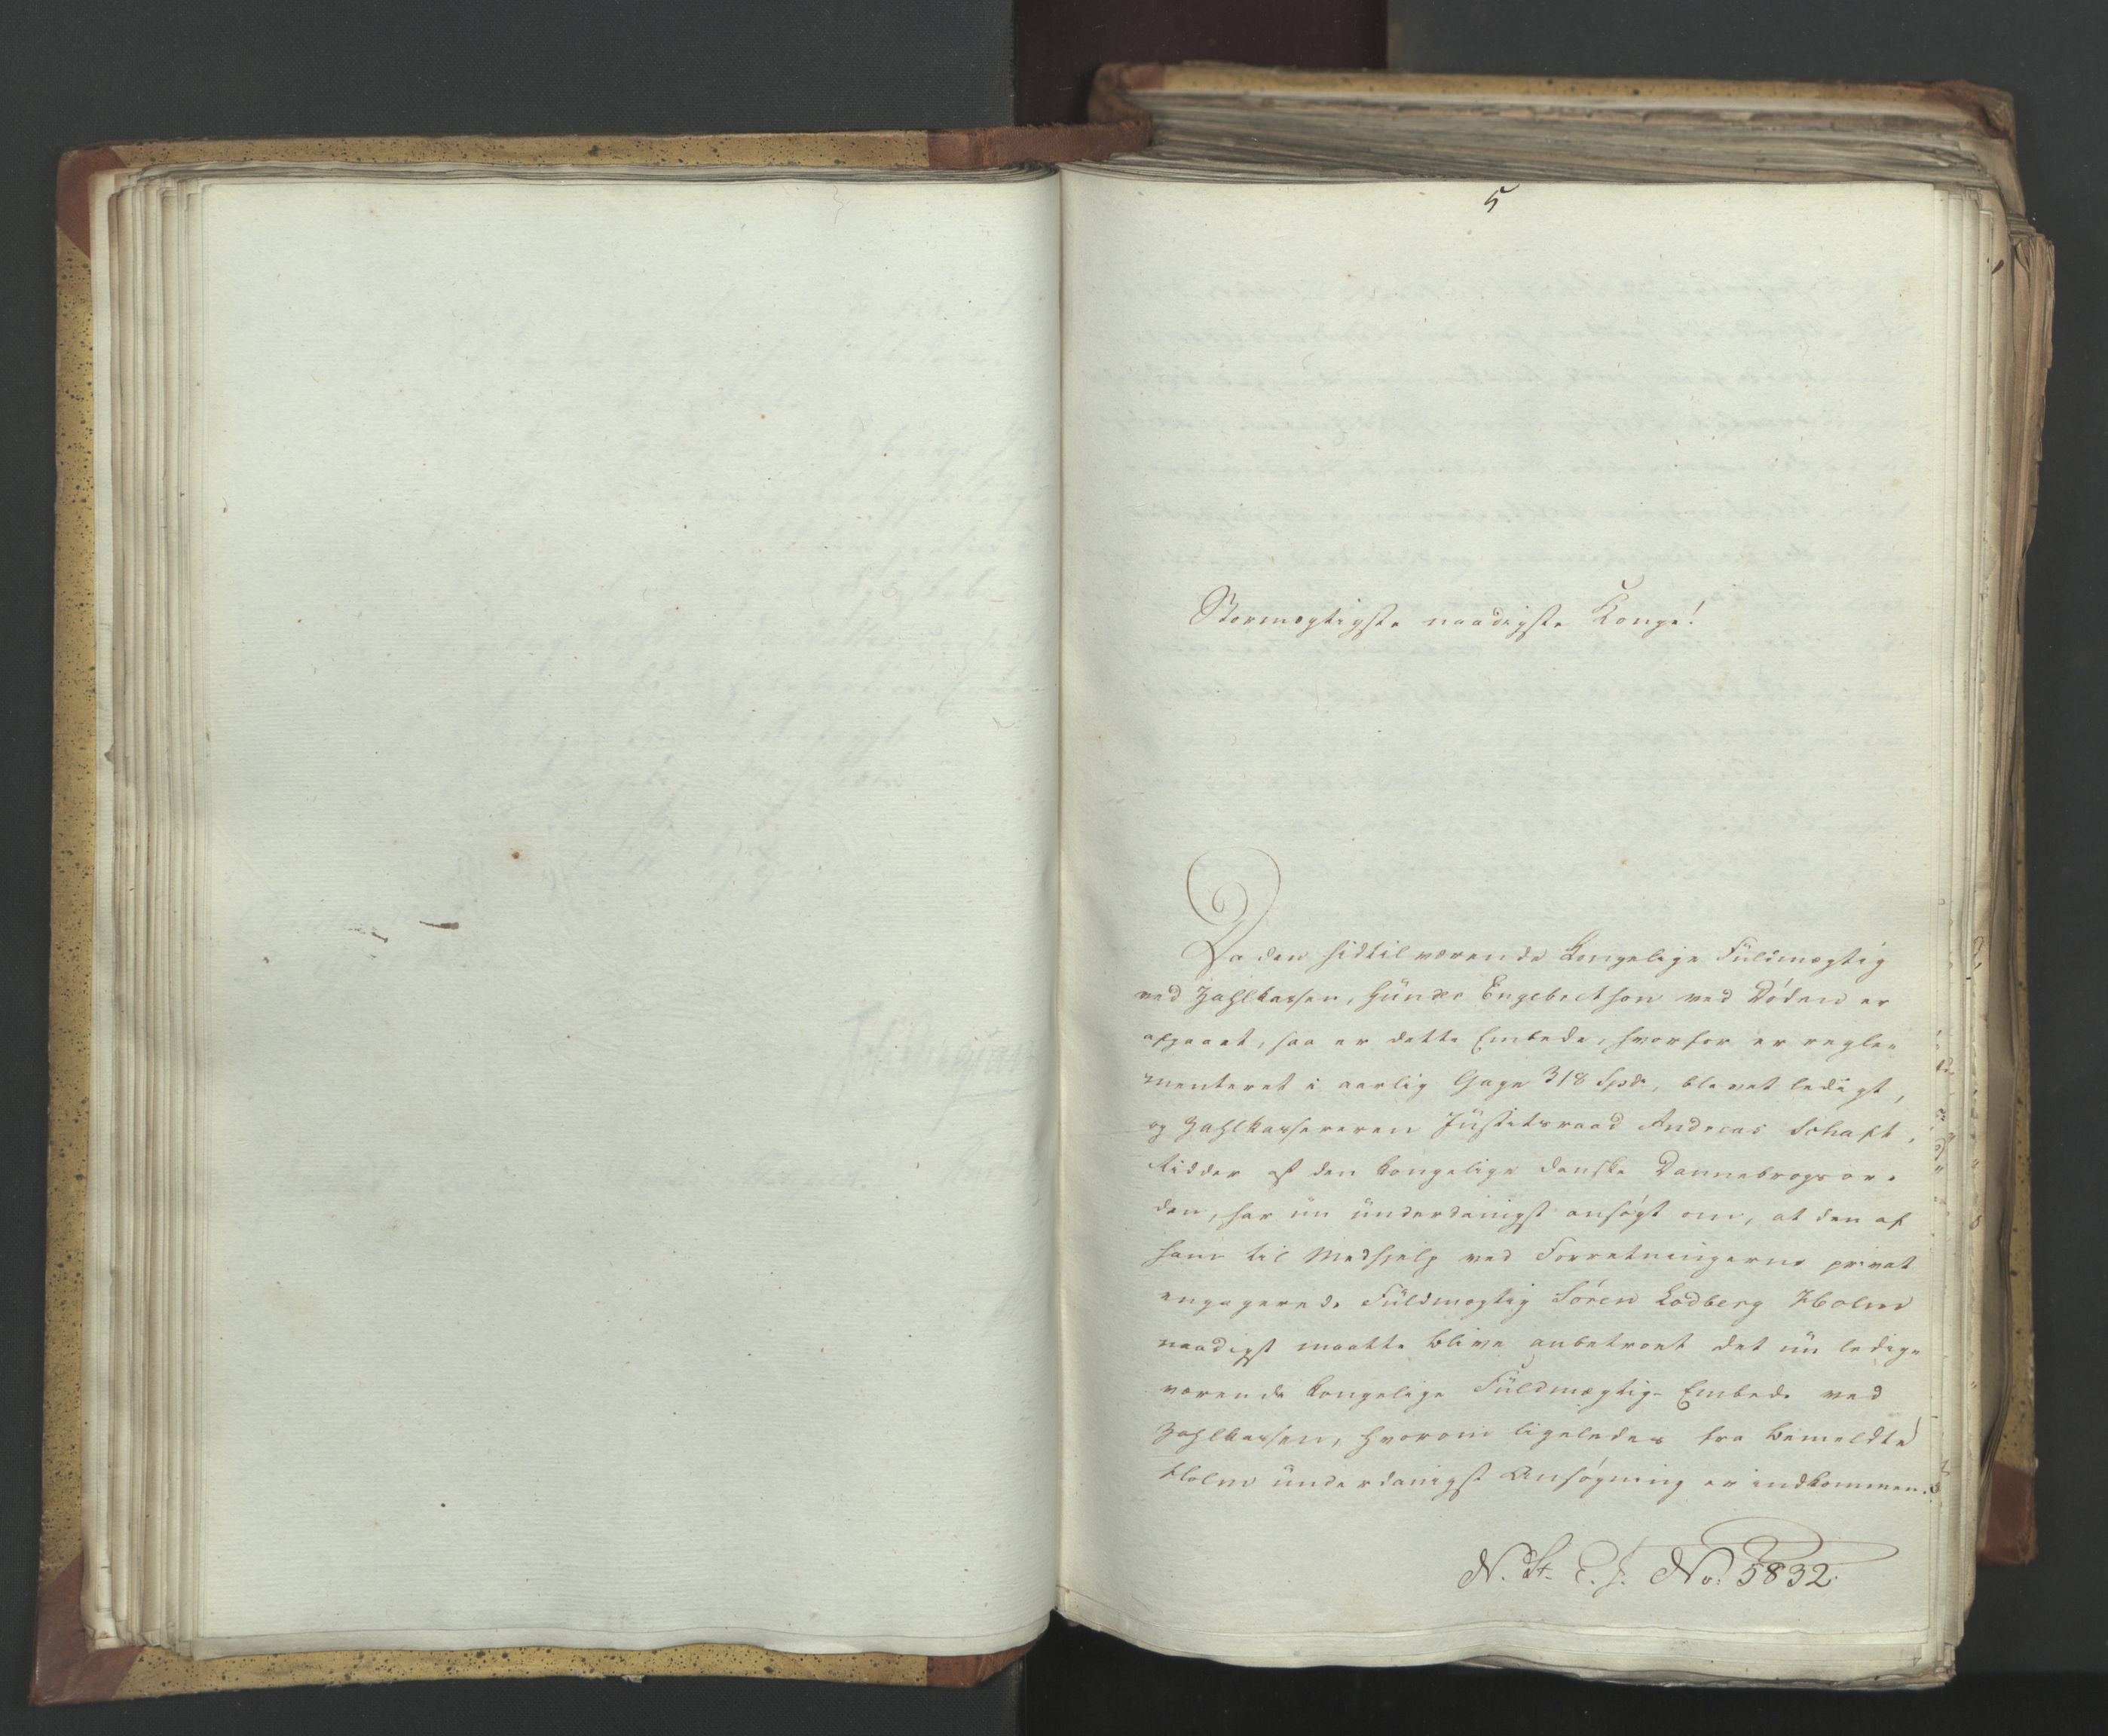 5
Stormægtigste naadigste Konge!
Da den hidtil værende Kongelige Füldmægtig
ved Zahlkassen, Günder Engebrethson ved Döden er
afgaaet, saa er dette Embede, hvorfor er regle-
menteret i aarlig Gage 318 Spd, blevet ledigt,
og Zahlkassereren Jüstitsraad Andreas Schaft,
Ridder af den kongelige danske Dannebrogsor-
den, har nü ünderdanigst ansögt om, at den af
ham til Medhjelp ved Forretningerne privat
engagerede Füldmægtig Sören Lodberg Holm
naadigst maatte blive anbetroet det nü ledige
værende kongelige Füldmægtig-Embede ved
Zahlkassen, hvorom ligeledes fra bemeldte
Holm ünderdanigst Ansögning er indkommen.
N. St. E. J. No. 5832.